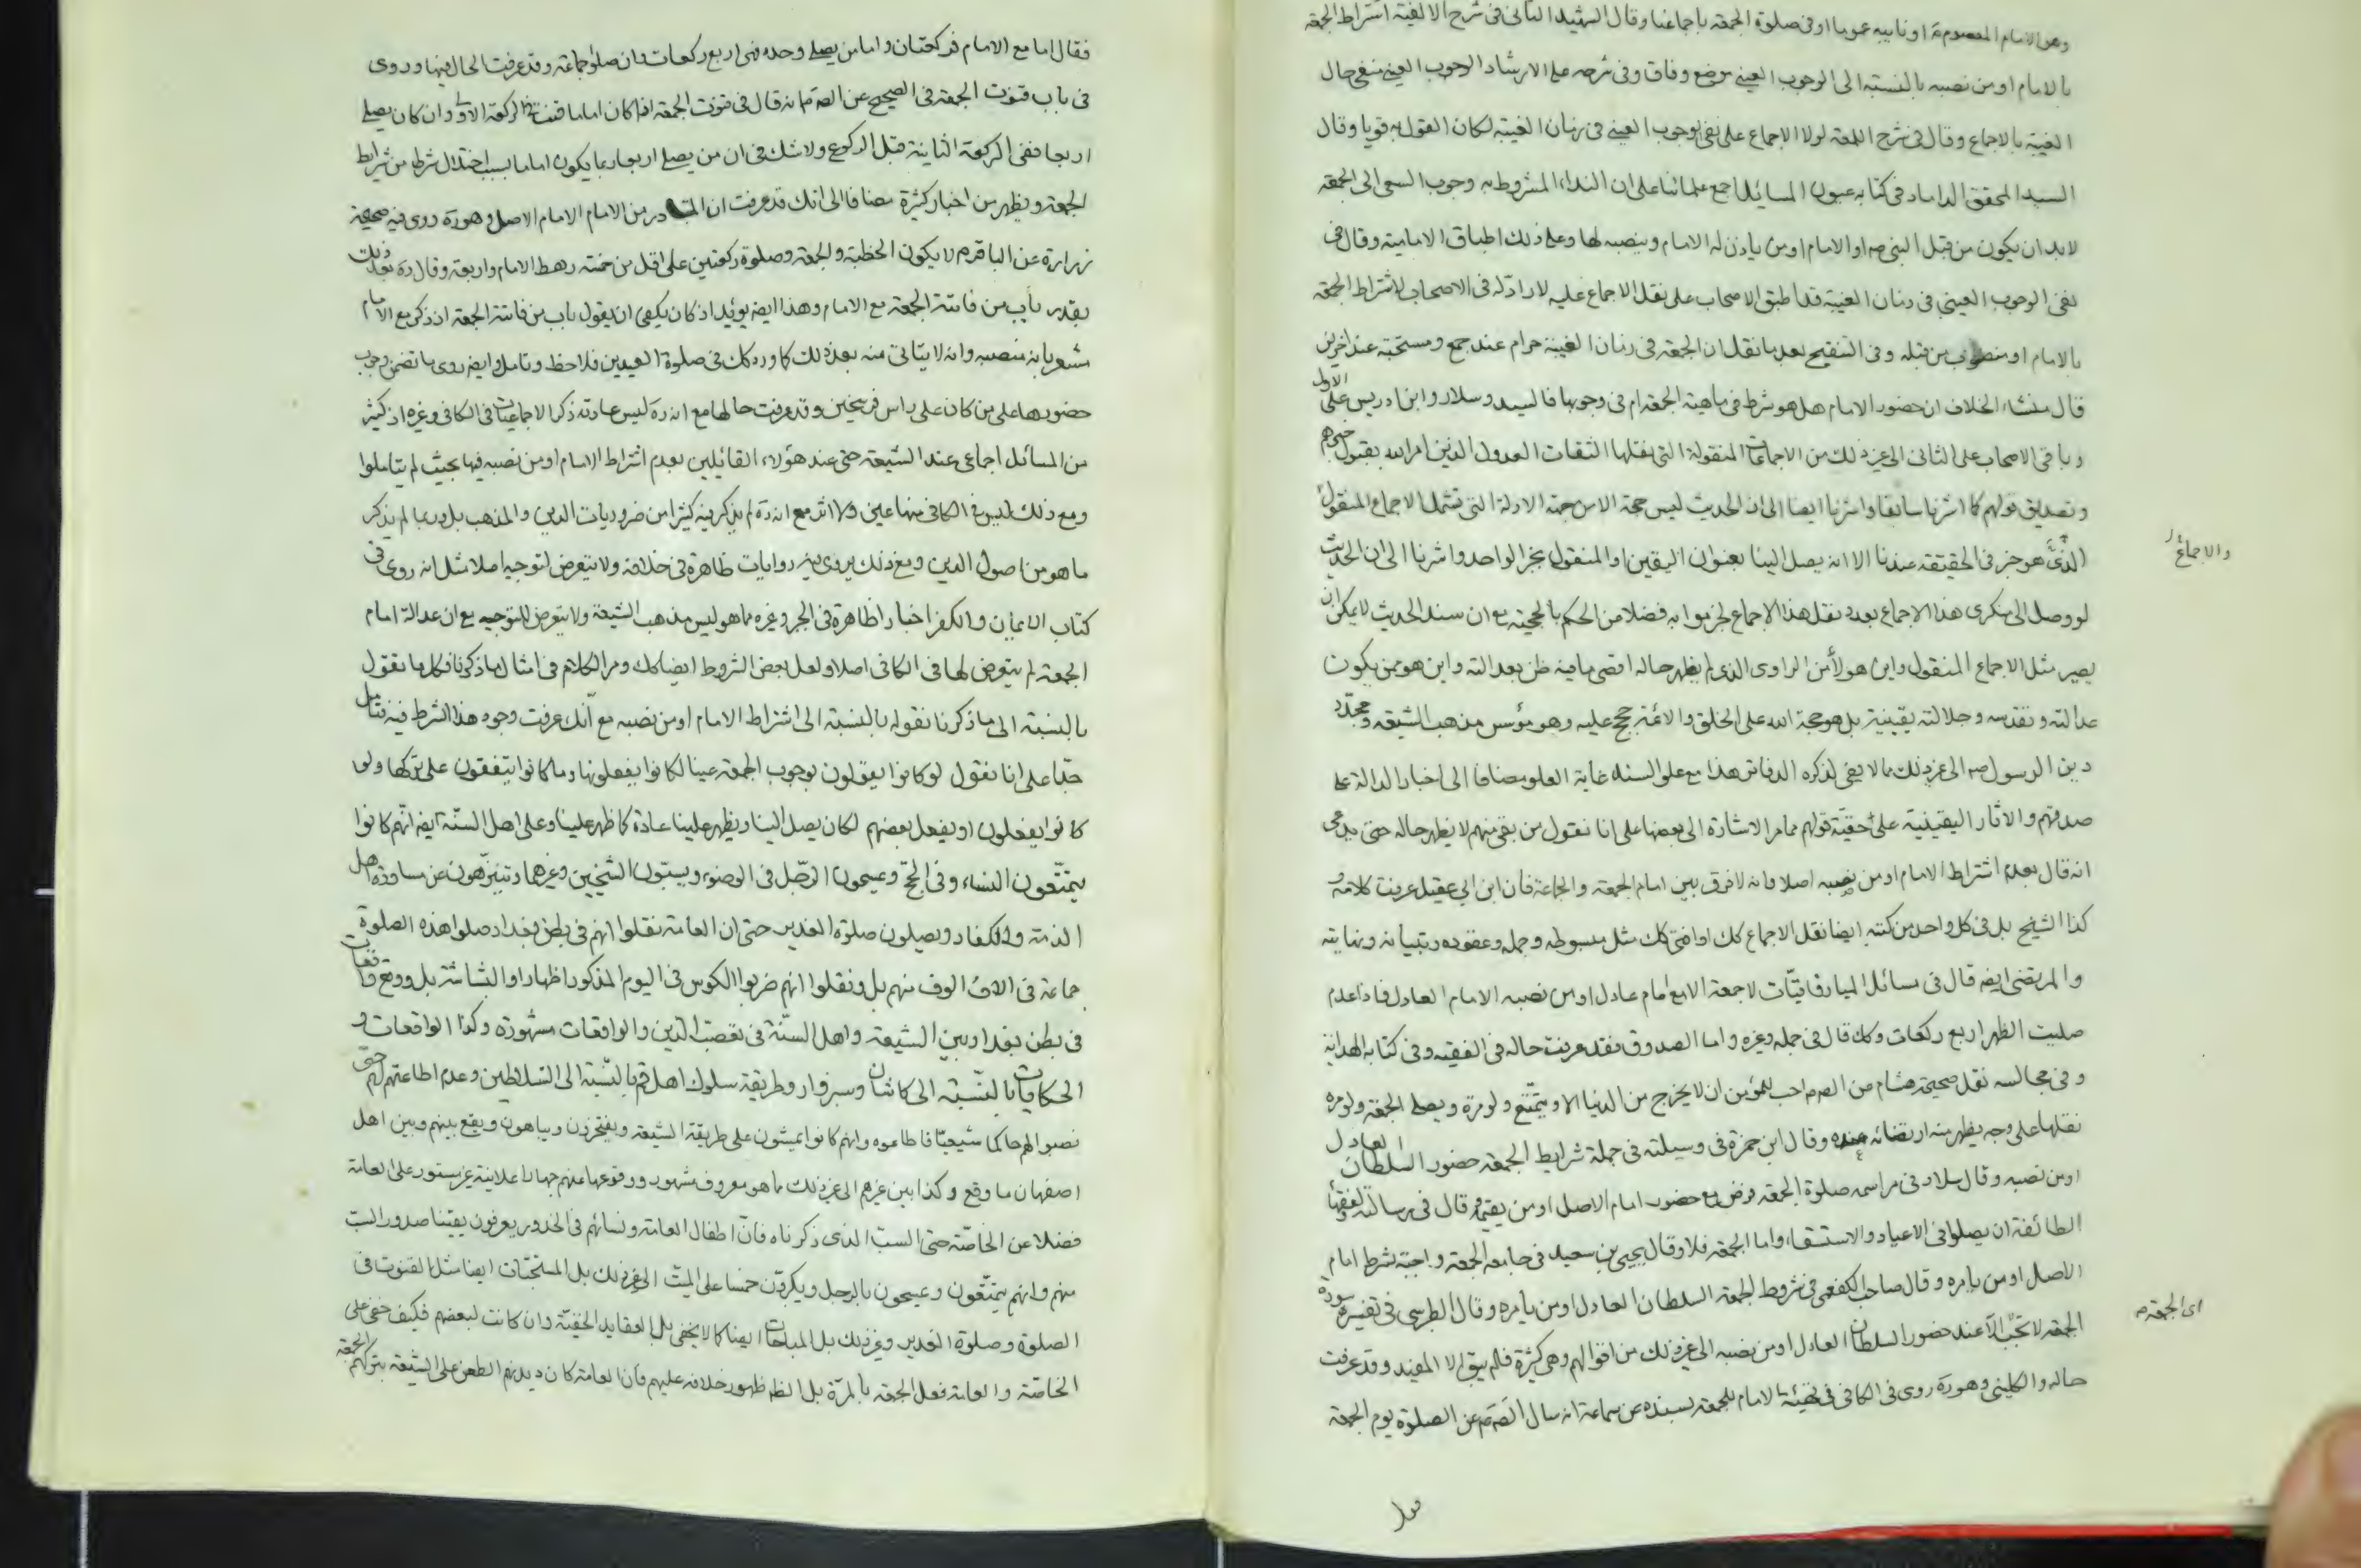 وهو الامام المعصوم ع او نايبه عموما او فى صلوة الجمعة باجماعنا وقال الشهيد الثانى فى شرح الالفية اشتراط الجمعة
بالامام او من نصبه بالنسبة الى الوجوب العينى موضع وفاق وفى شرحه على الارشاد الوجوب العينى منفى حال
الغيبة بالاجماع وقال فى شرح اللمعة لولا الاجماع على نفى الوجوب العينى فى زمان الغيبة لكان القول به قويا وقال
السيد المحقق الداماد فى كتابه عيون المسائل اجمع علمائنا على ان النداء المشروط به وجوب السعى الى الجمعة
لابد ان يكون من قبل النبى ص او الامام او من ياذن له الامام وينصبه لها وعلى ذلك اطباق الامامية وقال فى
نفى الوجوب العينى فى زمان الغيبة قد اطبق الاصحاب على نقل الاجماع عليه لا راد له فى الاصحاب لاشتراط الجمعة
بالامام او منصوب من قبله وفى التنقيح بعد ما نقل ان الجمعة فى زمان الغيبة حرام عند جمع ومستحبة عند اخرين
قال منشاء الخلاف ان حضور الامام هل هو شرط فى ماهية الجمعة ام فى وجوبها فالسيد وسلار وابن ادريس على الاول
وباقى الاصحاب على الثانى الى غير ذلك من الاجماعات المنقولة التى نقلها الثقات العدول الذين امر الله بقبول خبرهم
وتصديق قولهم كما اشرنا سابقا واشرنا ايضا الى ان الحديث ليس حجة الا من جهة الادلة التى تشمل الاجماع المنقول
الذى هو خبر فى الحقيقة عندنا الا انه يصل الينا بعنوان اليقين او المنقول بخبر الواحد واشرنا الى ان الحديث
والاجماع
لو وصل الى منكرى هذا الاجماع بعدد نقل هذا الاجماع لجزموا به فضلا من الحكم بالحجية مع ان سند الحديث لا يمكن ان
يصير مثل الاجماع المنقول واين هؤلاء من الراوى الذى لم يظهر حاله اقصى ما فيه ظن بعدالته واين هو ممن يكون
عدالته وتقدسه وجلالته يقينية بل هو حجة الله على الخلق والائمة حجج عليه وهو مؤسس مذهب الشيعة ومجدد
دين الرسول ص الى غير ذلك مما لا يفى لذكره الدفاتر هذا مع علو السند غاية العلو مضافا الى اخبار الدالة على
صدقهم والاثار اليقينية على حقية قولهم مما مر الاشارة الى بعضها على انا نقول من بقى منهم لا يظهر حاله حتى يدعى
انه قال بعدم اشتراط الامام او من نصبه اصلا وانه لا فرق بين امام الجمعة والجماعة فان ابن ابى عقيل عرفت كلامه و
كذا الشيخ بل فى كل واحد من كتبه ايضا نقل الاجماع كك او افتى كك مثل مبسوطه وجمله وعقوده وتبيانه ونهايته
والمرتضى ايضه قال فى مسائل الميارفاقيّات لا جمعة الا مع امام عادل او من نصبه الامام العادل فاذا عدم
صليت الظهر اربع ركعات وكك قال فى جمله وغيره واما الصدوق فقد عرفت حاله فى الفقيه وفى كتابه الهداية
وفى مجالسه نقل صحيحة هشام من الصم احب للمؤمن ان لا يخرج من الدنيا الا ويتمتع ولو مرة ويصلى الجمعة ولو مرة
نقلها على وجه يظهر منه ارتضائه عنده وقال ابن حمزة فى وسيلته فى جملة شرايط الجمعة حضور السلطان العادل
او من نصبه وقال سلار فى مراسمه صلوة الجمعة فرض مع حضور امام الاصل او من يقيمه قال فى رسالته لفقهاء
الطائفة ان يصلوا فى الاعياد والاستسقاء واما الجمعة فلا وقال يحيى بن سعيد فى جامعه الجمعة واجبة بشرط امام
الاصل او من يامره وقال صاحب الكفعمى فى شروط الجمعة السلطان العادل او من يامره وقال الطبرسى فى تفسيره سورة
الجمعة لا تجب الا عند حضور السلطان العادل او من نصبه الى غير ذلك من اقوالهم وهى كثيرة فلم يبق الا المفيد وقد عرفت
اى الجمعة م
حاله والكلينى وهو ره روى فى الكافى فى تهيئة الامام للجمعة بسنده عن سماعة انه سال الصم عن الصلوة يوم الجمعة
فقال اما مع الامام فركعتان واما من يصلى وحده فهى اربع ركعات وان صلوا جماعة وقد عرفت الحال فيها وروى
فى باب قنوت الجمعة فى الصحيح عن الصم انه قال فى قنوت الجمعة اذا كان اماما قنت فى الركعة الاولى وان كان يصلى
اربعا ففى الركعة الثانية قبل الركوع ولا شك فى ان من يصلى اربعا ربما يكون اماما بسبب اختلال شرط من شرايط
الجمعة ويظهر من اخبار كثيرة مضافا الى انك قد عرفت ان المتبادر من الامام الامام الاصل وهو ره روى فيه صحيحة
زرارة عن الباقر م لا يكون الخطبة والجمعة وصلوة ركعتين على اقل من خمسة رهط الامام واربعة وقال ره بعد ذلك
بقدر باب من فاتته الجمعة مع الامام وهذا ايضه يؤيد اذ كان يكفى ان يقول باب من فاتته الجمعة اذ ذكر مع الامام
مشعر بانه منصبه وانه لا يتاتى منه بعد ذلك كما ورد كك فى صلوة العيدين فلاحظ وتامل وايضه روى ما تضمن وجوب
حضورها على من كان على راس فرسخين وقد عرفت حالها مع انه ره ليس عادته ذكر الاجماعيات فى الكافى وغيره اذ كثير
من المسائل اجماعى عند الشيعة حتى عند هؤلاء القائلين بعدم اشتراط الامام او من نصبه فيها بحيث لم يتاملوا
ومع ذلك ليس فى الكافى منها عين ولا اثر مع انه ره لم يذكر فيه كثيرا من ضروريات الدين والمذهب بل وربما لم يذكر
ما هو من اصول الدين ومع ذلك يروى فيه روايات ظاهرة فى خلافه ولا يتعرض لتوجيه اصلا مثل انه روى فى
كتاب الايمان والكفر اخبارا ظاهرة فى الجبر وغيره مما هو ليس مذهب الشيعة ولا يتعرض للتوجيه مع ان عدالة امام
الجمعة لم يتعرض لها فى الكافى اصلا ولعل بعض الشروط ايضا كك ومر الكلام فى امثال ما ذكرنا فكل ما نقول
بالنسبة الى ما ذكرنا نقوله بالنسبة الى اشتراط الامام او من نصبه مع انّك عرفت وجود هذا الشرط فيه فتامل
جدّا على انا نقول لو كانوا يقولون بوجوب الجمعة عينا لكانوا يفعلونها وما كانوا يتفقون على تركها ولو
كانوا يفعلون او يفعل بعضهم لكان يصل الينا ويظهر علينا عادة كما ظهر علينا وعلى اهل السنّة ايضه انّهم كانوا
يتمتّعون النساء وفى الحجّ ويمسحون الرّجل فى الوضوء ويسبّون الشيخين وغيرهما ويتنزّهون عن مساورة اهل
الذمة والكفار ويصلون صلوة الغدير حتى ان العامة نقلوا انهم فى بطن بغداد صلوا هذه الصلوة
جماعة فى الاف الوف منهم بل ونقلوا انهم ضربوا الكوس فى اليوم المذكور اظهارا والبشاشة بل ووقع وقعات
فى بطن بغداد بين الشيعة واهل السنّة فى تعصب الدّين والواقعات مشهورة وكذا الواقعات و
الحكايات بالنسبة الى كاشان وسبزوار وطريقة سلوك اهل قم بالنّسبة الى السّلاطين وعدم اطاعتهم لهم حتى
نصبوا لهم حاكما شيعيّا فاطاعوه وانهم كانوا يمشون على طريقة الشيعة ويفتخرون ويباهون ويقع بينهم وبين اهل
اصفهان ما وقع وكذا بين غيرهم الى غير ذلك مما هو معروف مشهور ووقوعها عنهم جهارا علانية غير مستور على العامة
فضلا عن الخاصّة حتى السبّ الذى ذكرناه فانّ اطفال العامة ونسائهم فى الخدور يعرفون يقينا صدور السبّ
منهم وانهم يتمتّعون ويمسحون بالرجل ويكبّرون خمسا على الميّت الى غير ذلك بل المستحبّات ايضا مثل القنوت فى
الصلوة وصلوة الغدير وغير ذلك بل المباحات ايضا كما لا يخفى بل العقايد الخفيّة وان كانت لبعضهم فكيف خفى على
الخاصّة والعامة فعل الجمعة بالمرّة بل الظم ظهور خلافه عليهم فان العامة كان ديدنهم الطعن على الشيعة بتركهم الجمعة